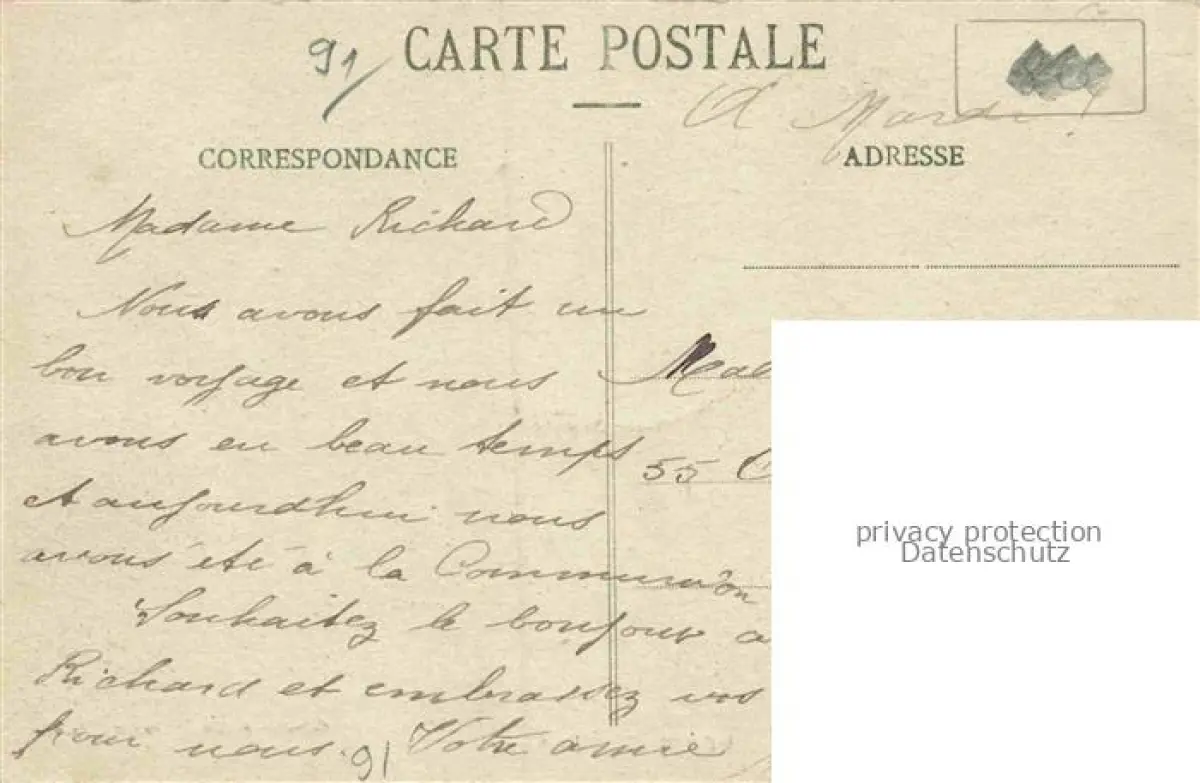 91
CARTE POSTALE
CORRESPONDANCE
ADRESSE
Madame Richard
Nous avons fait un
bon voyage et nous
avons eu beau temps
et aujourd'hui nous
avons été à la Communion
Souhaitez le bonjour a
Richard et embrassez vos
pour nous. Votre amie
91
55
privacy protection
Datenschutz